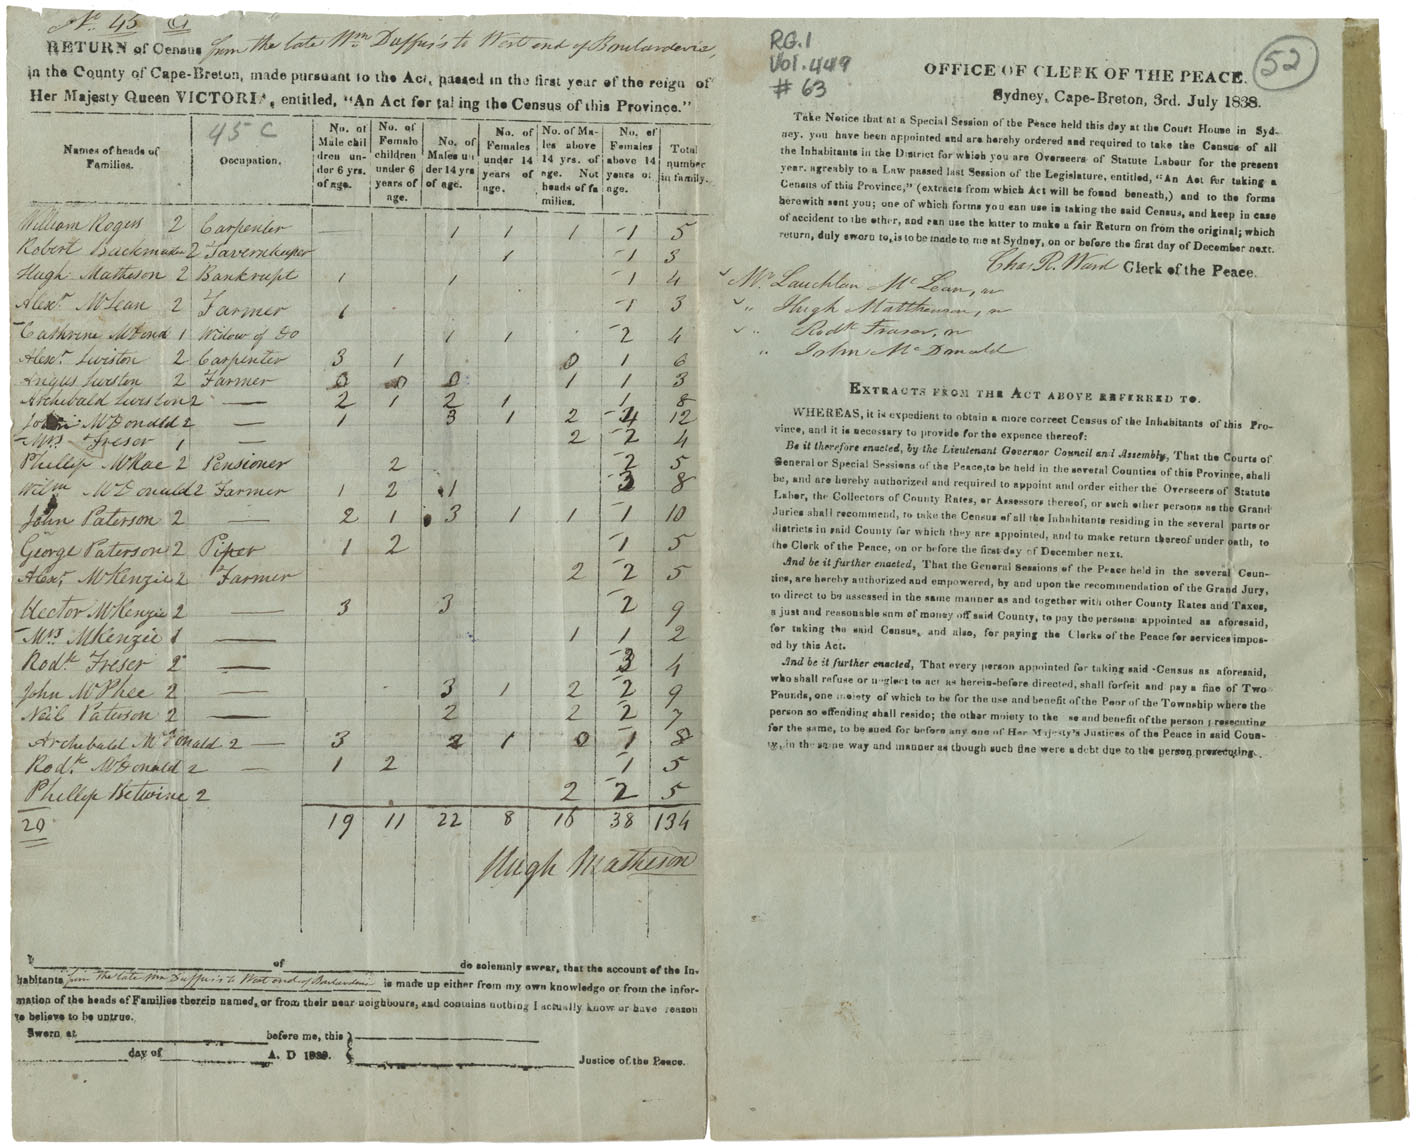 No. 45 C
RETURN of Census from the late Wm Duffus's to West end of Boularderie,
in the County of Cape-Breton, made pursuant to the Act, passed in the first year of the reign of
Her Majesty Queen VICTORIA, entitled, "An Act for taking the Census of this Province."
45 C
Names of heads of Families. Occupation. No. of Male children under 6 yrs. of age. No. of Female children under 6 years of age. No. of Males under 14 yrs of age. No. of Females under 14 years of age. No. of Males above 14 yrs. of age. Not heads of families. No. of Females above 14 years of age. Total number in family.
William Rogers 2 Carpenter — 1 1 1 1 5
Robert 2 Tavernkeeper 1 1 3
Hugh Matheson 2 Bankrupt 1 1 1 4
Alexr McLean 2 Farmer 1 1 3
Cathrine McDond 1 Widow of Do 1 1 2 4
Alexr Liviston 2 Carpenter 3 1 0 1 6
Angus Liviston 2 Farmer 0 0 0 1 1 3
Archibald Liviston 2 — 2 1 2 1 1 8
John McDonald 2 — 1 3 1 2 4 12
Mrs Freser 1 — 2 2 4
Phillip McRae 2 Pensioner 2 2 5
Wilm McDonald 2 Farmer 1 2 1 3 8
John Paterson 2 — 2 1 3 1 1 1 10
George Paterson 2 Piper 1 2 1 5
Alexr McKenzie 2 Farmer 2 2 5
Hector McKenzie 2 — 3 3 2 9
Mrs McKenzie 1 — 1 1 2
Rodk Freser 2 — 3 4
John McPhee 2 — 3 1 2 2 9
Neil Paterson 2 — 2 2 2 7
Archebald McDonald 2 — 3 2 1 0 1 8
Rodk McDonald 2 — 1 2 1 5
Phillip Betwine 2 2 2 5
20 19 11 22 8 16 38 134
Hugh Matheson
I of do solemnly swear, that the account of the In-
habitants from the late Wm Duffus's to West end of Boularderie is made up either from my own knowledge or from the infor-
mation of the heads of Families therein named, or from their near neighbours, and contains nothing I actually know or have reason
to believe to be untrue.
Sworn at before me, this
day of A. D 1838. Justice of the Peace.
RG.1
Vol. 449
# 63
52
OFFICE OF CLERK OF THE PEACE.
Sydney, Cape-Breton, 3rd. July 1838.
Take Notice that at a Special Session of the Peace held this day at the Court House in Syd-
ney, you have been appointed and are hereby ordered and required to take the Census of all
the Inhabitants in the District for which you are Overseers of Statute Labour for the present
year, agreably to a Law passed last Session of the Legislature, entitled, "An Act for taking a
Census of this Province," (extracts from which Act will be found beneath,) and to the forms
herewith sent you; one of which forms you can use in taking the said Census, and keep in case
of accident to the other, and can use the latter to make a fair Return from the original; which
return, duly sworn to, is to be made to me at Sydney, on or before the first day of December next.
Chas R. Ward Clerk of the Peace.
Mr. Lauchlan McLean,
" Hugh Mattheuson,
" Rodk Fraser,
" John McDonald
EXTRACTS FROM THE ACT ABOVE REFERRED TO.
WHEREAS, it is expedient to obtain a more correct Census of the Inhabitants of this Pro-
vince, and it is necessary to provide for the expence thereof:
Be it therefore enacted, by the Lieutenant Governor Council and Assembly, That the Courts of
General or Special Sessions of the Peace, to be held in the several Counties of this Province, shall
be, and are hereby authorized and required to appoint and order either the Overseers of Statute
Labor, the Collectors of County Rates, or Assessors thereof, or such other persons as the Grand
Juries shall recommend, to take the Census of all the Inhabitants residing in the several parts or
districts in said County for which they are appointed, and to make return thereof under oath, to
the Clerk of the Peace, on or before the first day of December next.
And be it further enacted, That the General Sessions of the Peace held in the several Coun-
ties, are hereby authorized and empowered, by and upon the recommendation of the Grand Jury,
to direct to be assessed in the same manner as and together with other County Rates and Taxes,
a just and reasonable sum of money off said County, to pay the persons appointed as aforesaid,
for taking the said Census, and also, for paying the Clerks of the Peace for services impos-
ed by this Act.
And be it further enacted, That every person appointed for taking said Census as aforesaid,
who shall refuse or neglect to act as herein-before directed, shall forfeit and pay a fine of Two
Pounds, one moiety of which to be for the use and benefit of the Poor of the Township where the
person so offending shall reside; the other moiety to the se and benefit of the person prosecuting
for the same, to be sued for before any one of Her Majesty's Justices of the Peace in said Coun-
ty, in the same way and manner as though such fine were a debt due to the person prosecuting.